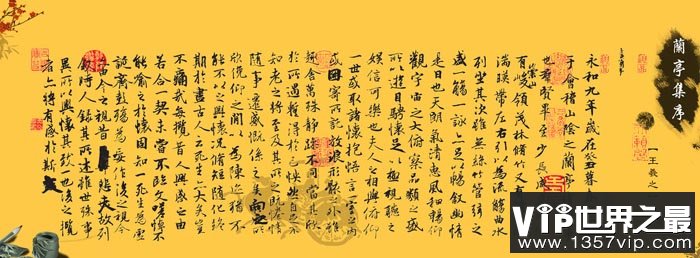 蘭亭集序
【王羲之】
永和九年歲在癸丑暮
于會稽山陰之蘭亭
也羣賢畢至少長咸
有崇山峻領茂林脩竹又有
湍暎帶左右引以為流觴曲水
列坐其次雖無絲竹管弦之
盛一觴一詠亦足以暢敘幽情
是日也天朗氣清惠風和暢仰
觀宇宙之大俯察品類之盛
所以遊目騁懷足以極視聽之
娛信可樂也夫人之相與俯仰
一世或取諸懷抱悟言一室之內
或因寄所託放浪形骸之外雖
趣舍萬殊靜躁不同當其欣
於所遇蹔得於己怏然自足不
知老之將至及其所之既惓情
隨事遷感慨係之矣向之所
欣俛仰之閒以為陳迹猶不
能不以之興懷況脩短隨化終
期於盡古人云死生亦大矣豈
不痛哉每攬昔人興感之由
若合一契未嘗不臨文嗟悼不
能喻之於懷固知一死生為虛
誕齊彭殤為妄作後之視今
亦由今之視昔悲夫故列
敘時人錄其所述雖世殊事
異所以興懷其致一也後之攬
者亦將有感於斯
VIP世界之最
www.1357vip.com